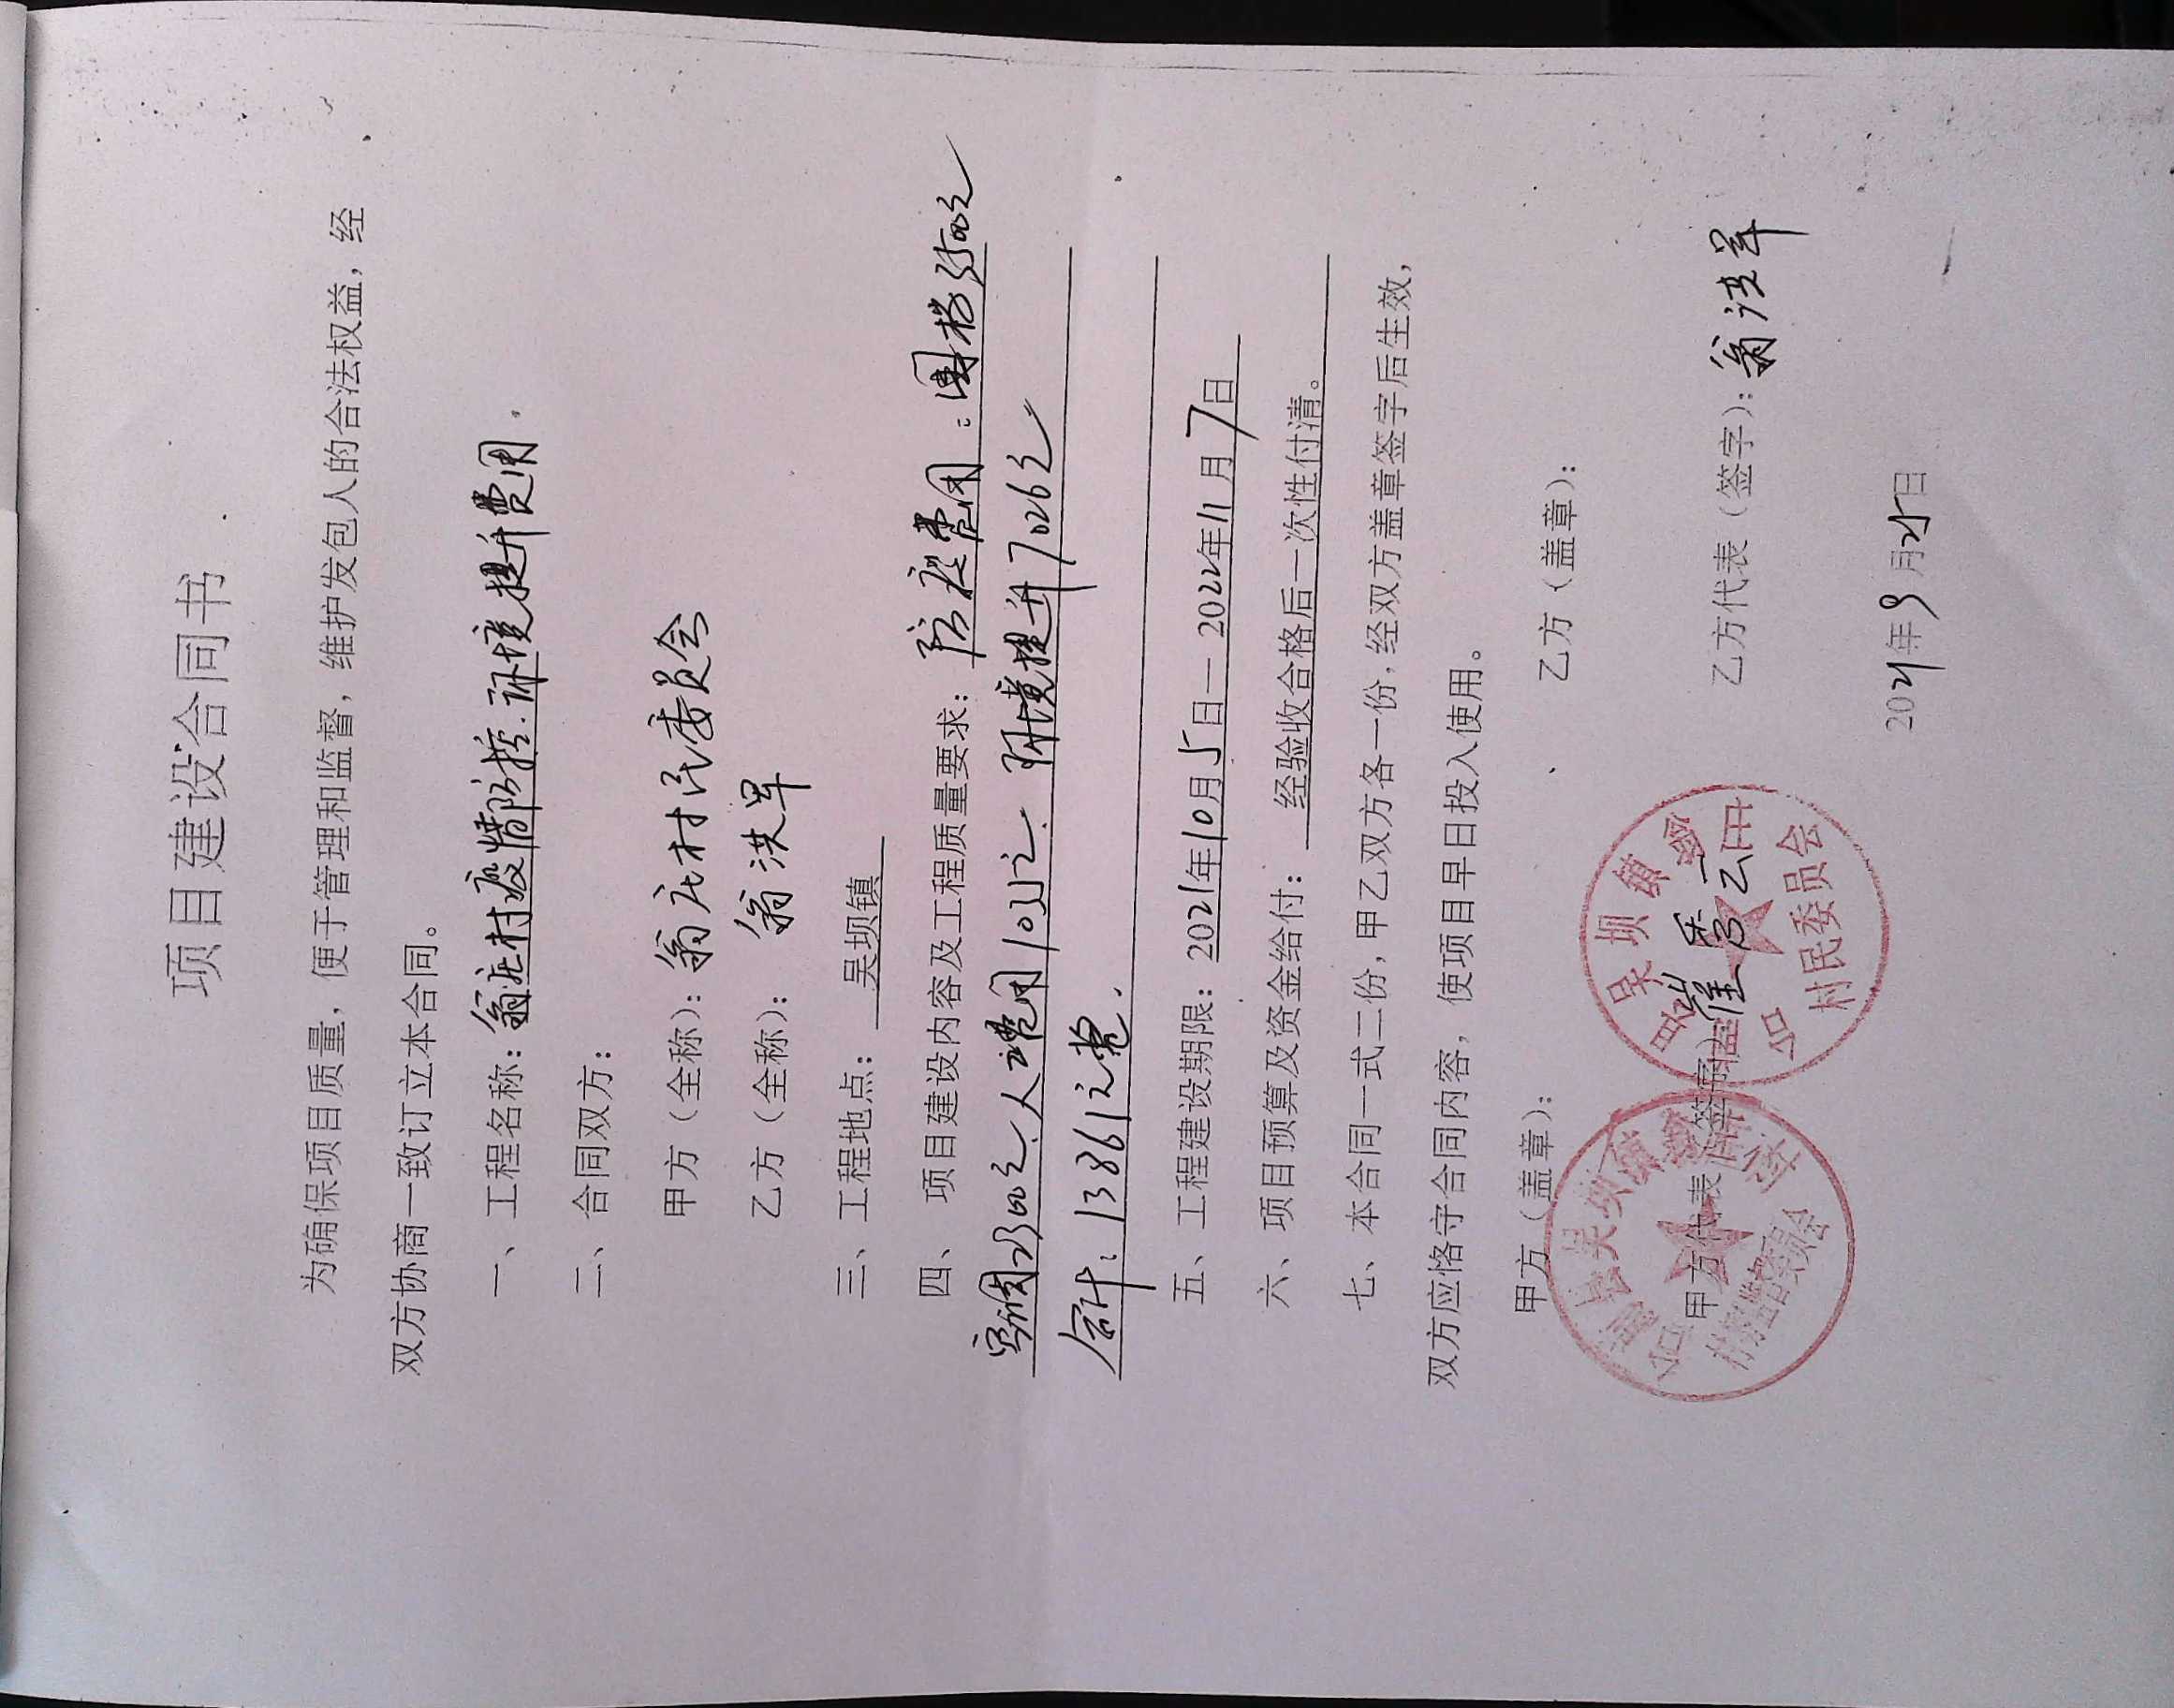 项目建设合同书
为确保项目质量，便于管理和监督，维护发包人的合法权益，经
双方协商一致订立本合同。
一、工程名称：翁庄村疫情防控.环境提升费用.
二、合同双方：
甲方（全称）：翁庄村民委员会
乙方（全称）：翁洪军
三、工程地点：吴坝镇
四、 项目建设内容及工程质量要求：防疫费用：围挡3500元
2300元、人工费用1035元. 环境提升7026元
合计：13861元整.
五、工程建设期限：2021年10月5日—2022年11月7日
六、项目预算及资金给付：经验收合格后一次性付清。
七、本合同一式二份，甲乙双方各一份，经双方盖章签字后生效，
双方应恪守合同内容，使项目早日投入使用。
甲方（盖章）： 乙方（盖章）：
甲方代表（签字） 乙方代表（签字）：翁洪军
吴坝镇
村民委员会
2021年9月25日